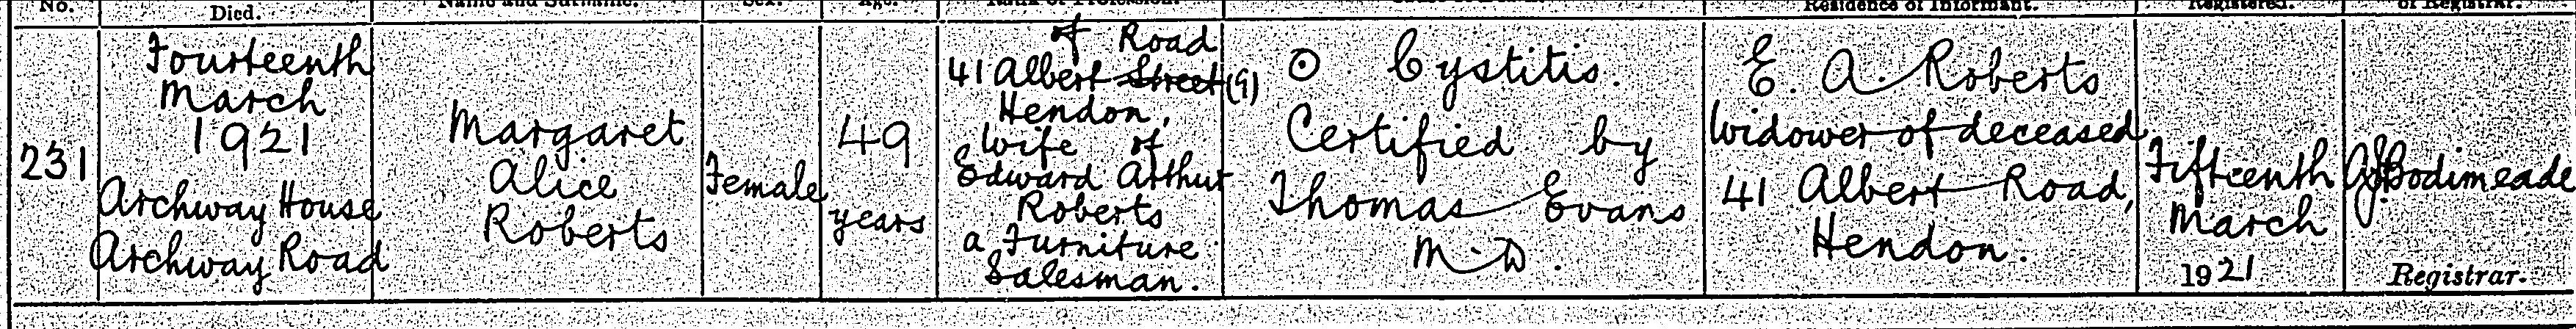 No.
Died.
Name and Surname.
Sex.
Age.
Residence of Informant.
Registered.
of Registrar.
231
Fourteenth
March
1921
Archway House
Archway Road
Margaret
Alice
Roberts
Female
49
years
of Road
41 Albert Street (9)
Hendon,
Wife of
Edward Arthur
Roberts
a Furniture
Salesman.
Cystitis.
Certified by
Thomas Evans
M.D.
E. A. Roberts
Widower of deceased
41 Albert Road,
Hendon.
Fifteenth
March
1921
Bodimeade
Registrar.